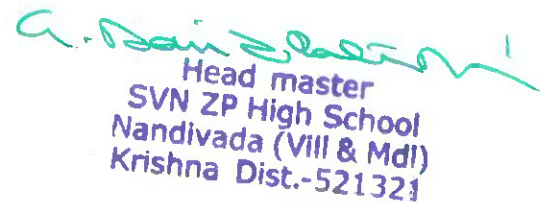 Head master
SVN ZP High School
Nandivada (Vill & Mdl)
Krishna Dist.-521321